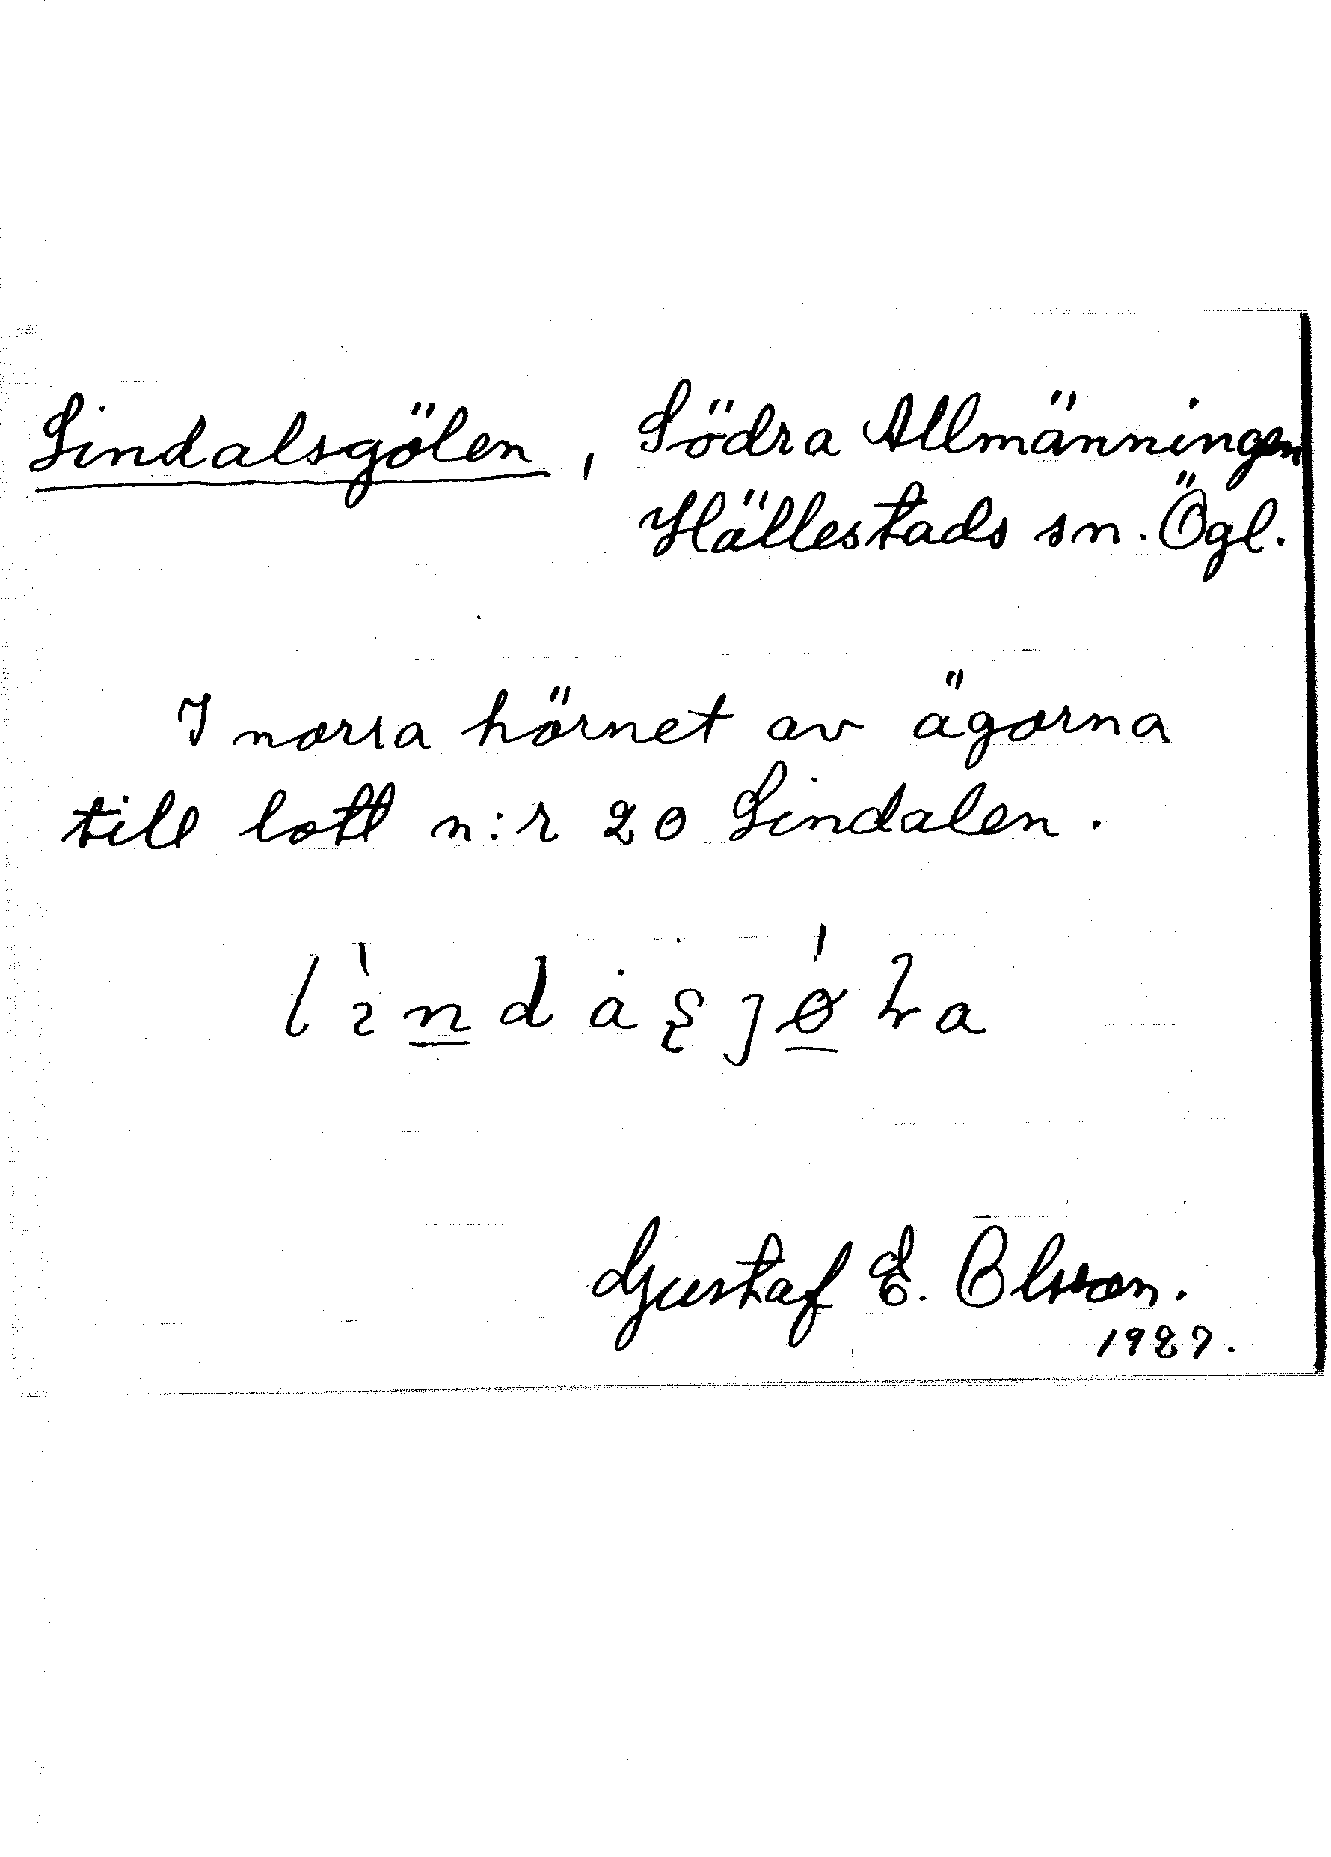 Lindalsgölen, Södra Allmänningen
Hällestads sn. Ögl.
I norra hörnet av ägorna
till lott n:r 20 Lindalen.
Gustaf E. Olsson.
1987.